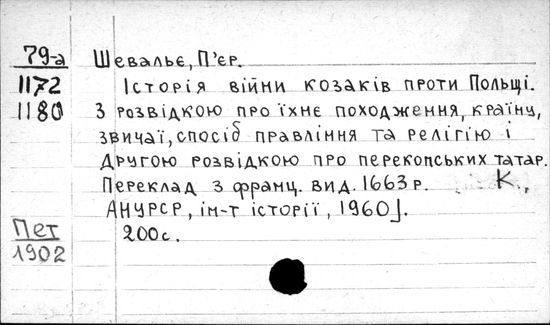 79-а
1172
1180
Шевальє, П'єр.
Історія війни козаків проти Польщі.
З розвідкою про їхнє походження, країну,
звичаї, спосіб правління та релігію і
другою розвідкою про перекопських татар.
Переклад з франц. вид. 1663 р. К.,
АНУРСР, ін-т історії, 1960].
200с.
Пет
1902